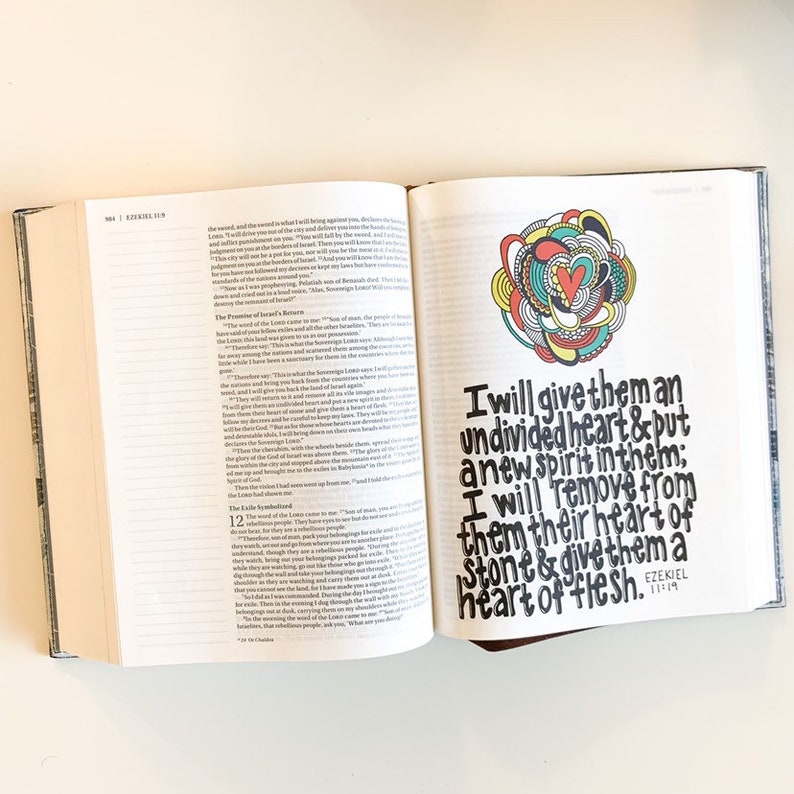 984 | EZEKIEL 11:9
the sword, and the sword is what I will bring against you, declares the Sovereign
LORD. "I will drive you out of the city and deliver you into the hands of
and inflict punishment on you. 10You will fall by the sword, and I will
judgment on you at the borders of Israel. Then you will know that I am the
11This city will not be a pot for you, nor will you be the meat in it; I will
judgment on you at the borders of Israel. 12And you will know that I am the
for you have not followed my decrees or kept my laws but have conformed to the
standards of the nations around you."
13Now as I was prophesying, Pelatiah son of Benaiah died. Then I fell
down and cried out in a loud voice, "Alas, Sovereign LORD! Will you completely
destroy the remnant of Israel?"
The Promise of Israel's Return
14The word of the LORD came to me: 15"Son of man, the people of Jerusalem
have said of your fellow exiles and all the other Israelites, 'They are far away from
the LORD; this land was given to us as our possession.'
16"Therefore say: 'This is what the Sovereign LORD says: Although I sent them
far away among the nations and scattered them among the countries, yet for a
little while I have been a sanctuary for them in the countries where they have
gone.'
17"Therefore say: 'This is what the Sovereign LORD says: I will gather you from
the nations and bring you back from the countries where you have been scat-
tered, and I will give you back the land of Israel again.'
18"They will return to it and remove all its vile images and detestable idols.
19I will give them an undivided heart and put a new spirit in them; I will remove
from them their heart of stone and give them a heart of flesh. 20Then they will
follow my decrees and be careful to keep my laws. They will be my people, and I
will be their God. 21But as for those whose hearts are devoted to their vile images
and detestable idols, I will bring down on their own heads what they have done,
declares the Sovereign LORD."
22Then the cherubim, with the wheels beside them, spread their wings, and
the glory of the God of Israel was above them. 23The glory of the LORD went up
from within the city and stopped above the mountain east of it. 24The Spirit lift-
ed me up and brought me to the exiles in Babylonia* in the vision given by the
Spirit of God.
Then the vision I had seen went up from me, 25and I told the exiles everything
the LORD had shown me.
The Exile Symbolized
12 The word of the LORD came to me: 2"Son of man, you are living among a
rebellious people. They have eyes to see but do not see and ears to hear but
do not hear, for they are a rebellious people.
3"Therefore, son of man, pack your belongings for exile and in the daytime, as
they watch, set out and go from where you are to another place. Perhaps they will
understand, though they are a rebellious people. 4During the daytime, while
they watch, bring out your belongings packed for exile. Then in the evening,
while they are watching, go out like those who go into exile. 5While they watch,
dig through the wall and take your belongings out through it. 6Put them on your
shoulder as they are watching and carry them out at dusk. Cover your face so
that you cannot see the land, for I have made you a sign to the Israelites."
7So I did as I was commanded. During the day I brought out my things packed
for exile. Then in the evening I dug through the wall with my hands. I took my
belongings out at dusk, carrying them on my shoulders while they watched.
8In the morning the word of the LORD came to me: 9"Son of man, did not the
Israelites, that rebellious people, ask you, 'What are you doing?'
*24 Or Chaldea
I will give them an
undivided heart & put
a new spirit in them;
I will remove from
them their heart of
stone & give them a
heart of flesh. EZEKIEL
11:19